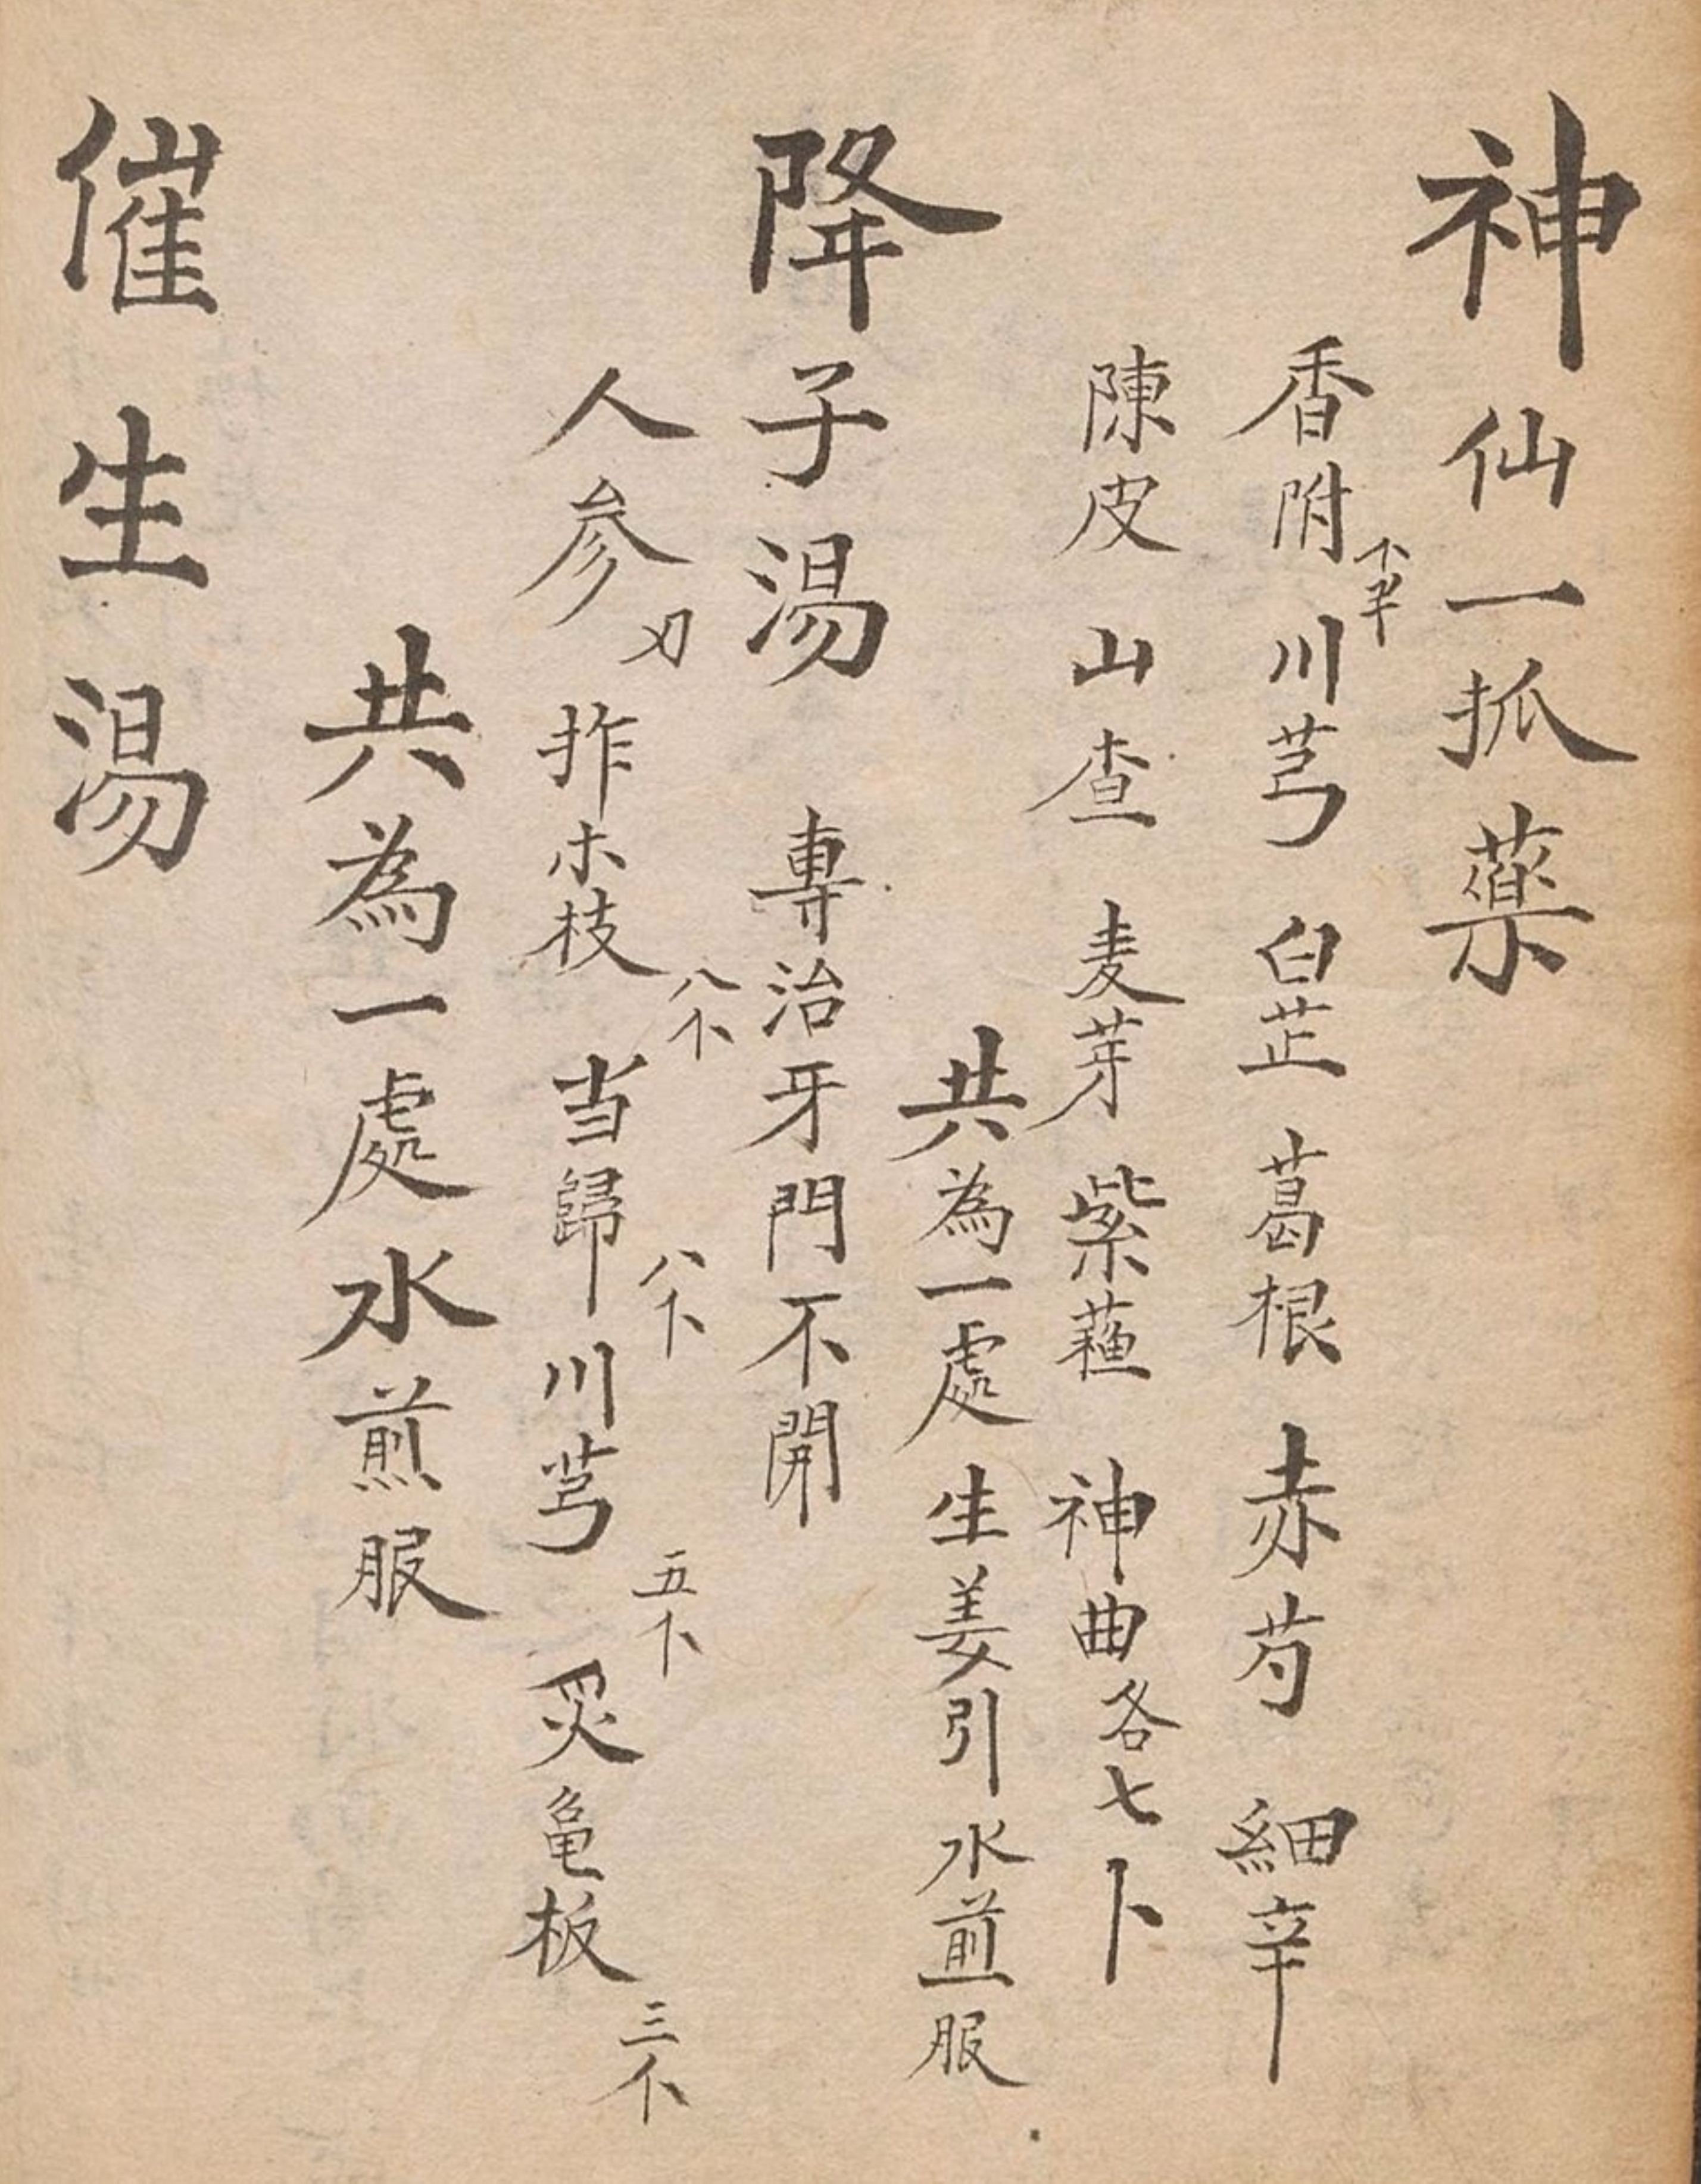 神仙一抓藥
香附 川芎 白芷 葛根 赤芍 細辛
陳皮 山查 麦芽 紫蘓 神曲各七卜
共為一處生姜引水煎服
降子湯 專治牙門不開
人参 柞木枝 八个 当歸 八卜 川芎 五卜 炙龟板 三个
共為一處水煎服
催生湯